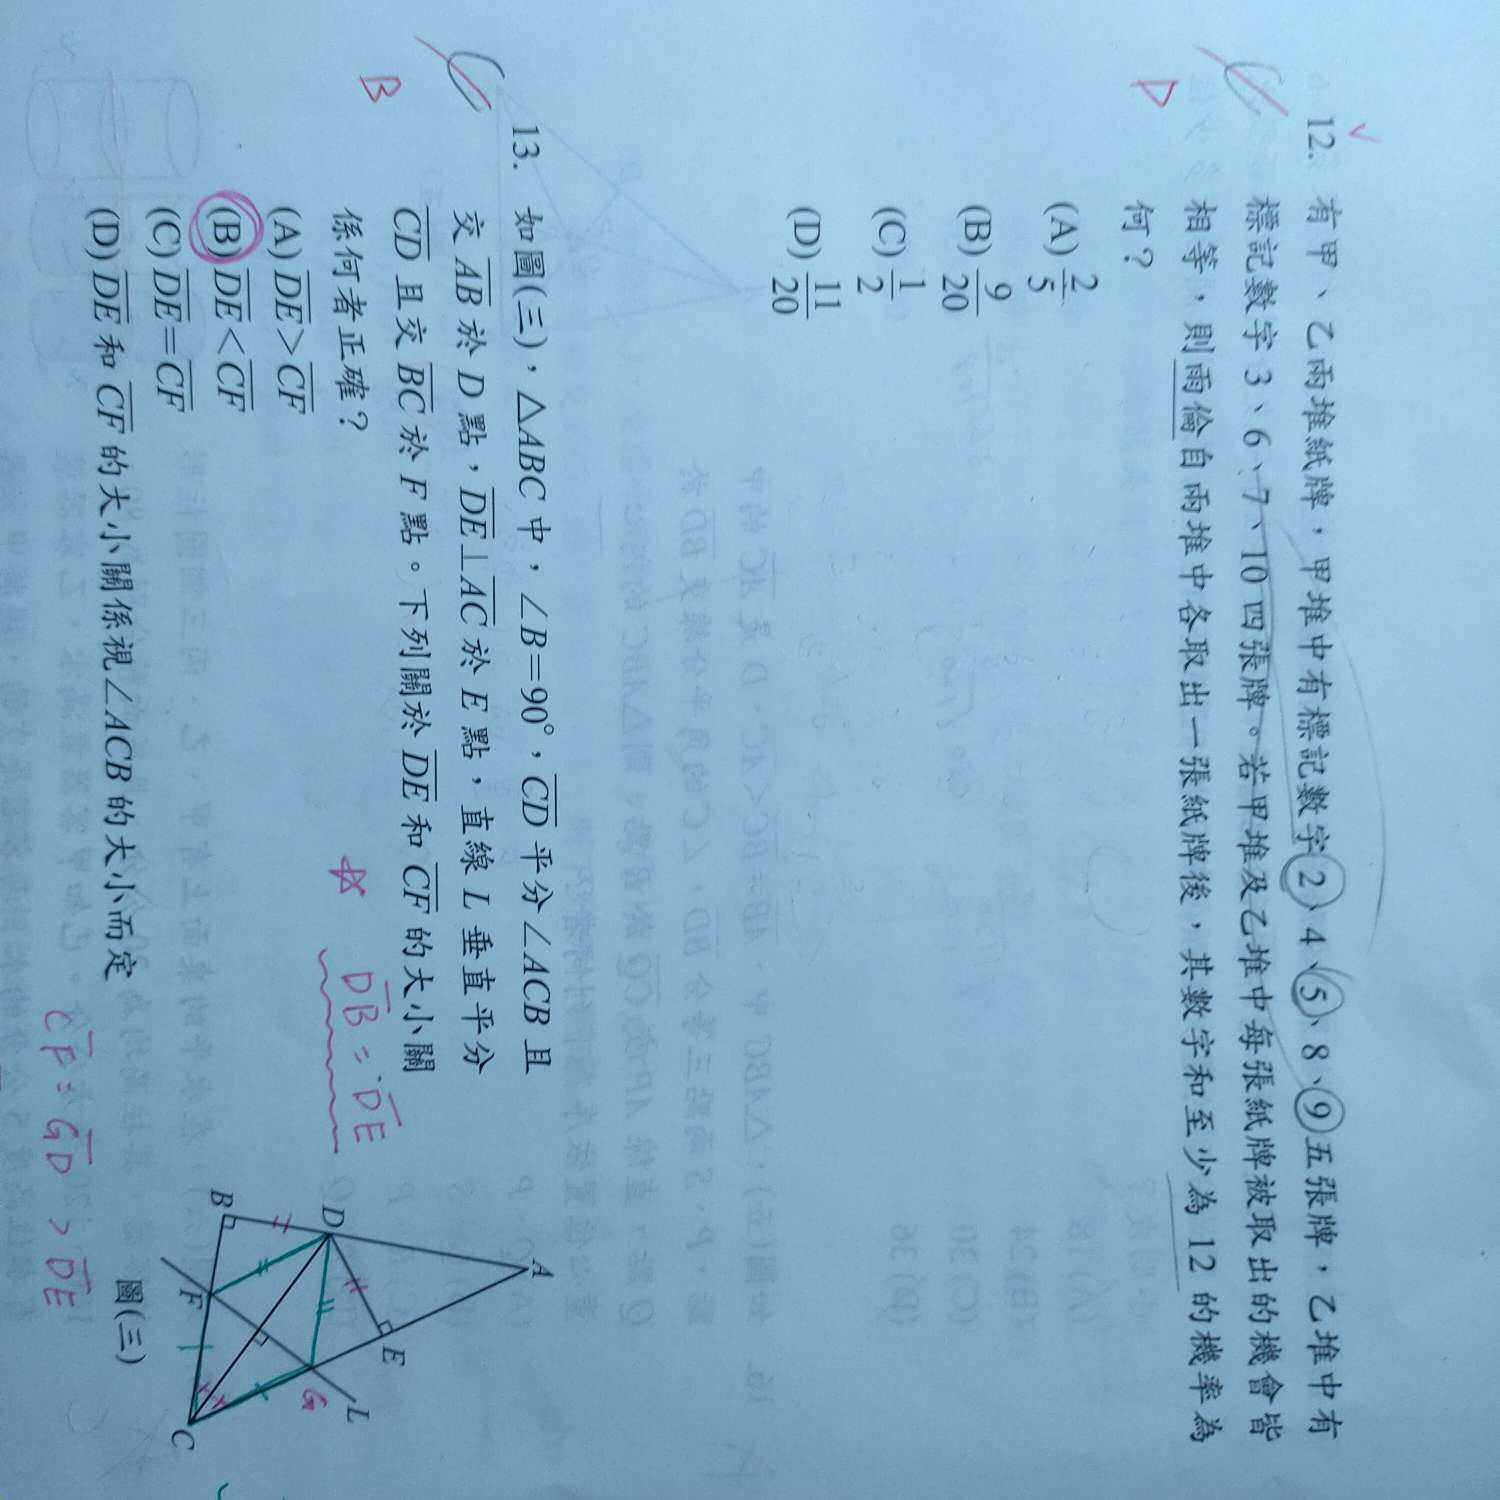 12. 有甲、乙兩堆紙牌，甲堆中有標記數字2、4、5、8、9五張牌，乙堆中有
標記數字3、6、7、10四張牌。若甲堆及乙堆中每張紙牌被取出的機會皆
相等，則雨倫自兩堆中各取出一張紙牌後，其數字和至少為12的機率為
何？
D
(A) 2/5
(B) 9/20
(C) 1/2
(D) 11/20
13. 如圖(三)，△ABC中，∠B=90°，CD平分∠ACB且
交AB於D點，DE⊥AC於E點，直線L垂直平分
CD且交BC於F點。下列關於DE和CF的大小關
係何者正確？
B
(A) DE>CF
(B) DE<CF
(C) DE=CF
(D) DE和CF的大小關係視∠ACB的大小而定
DB = DE
CF = GD > DE
A
D
E
B
F
G
L
C
圖(三)